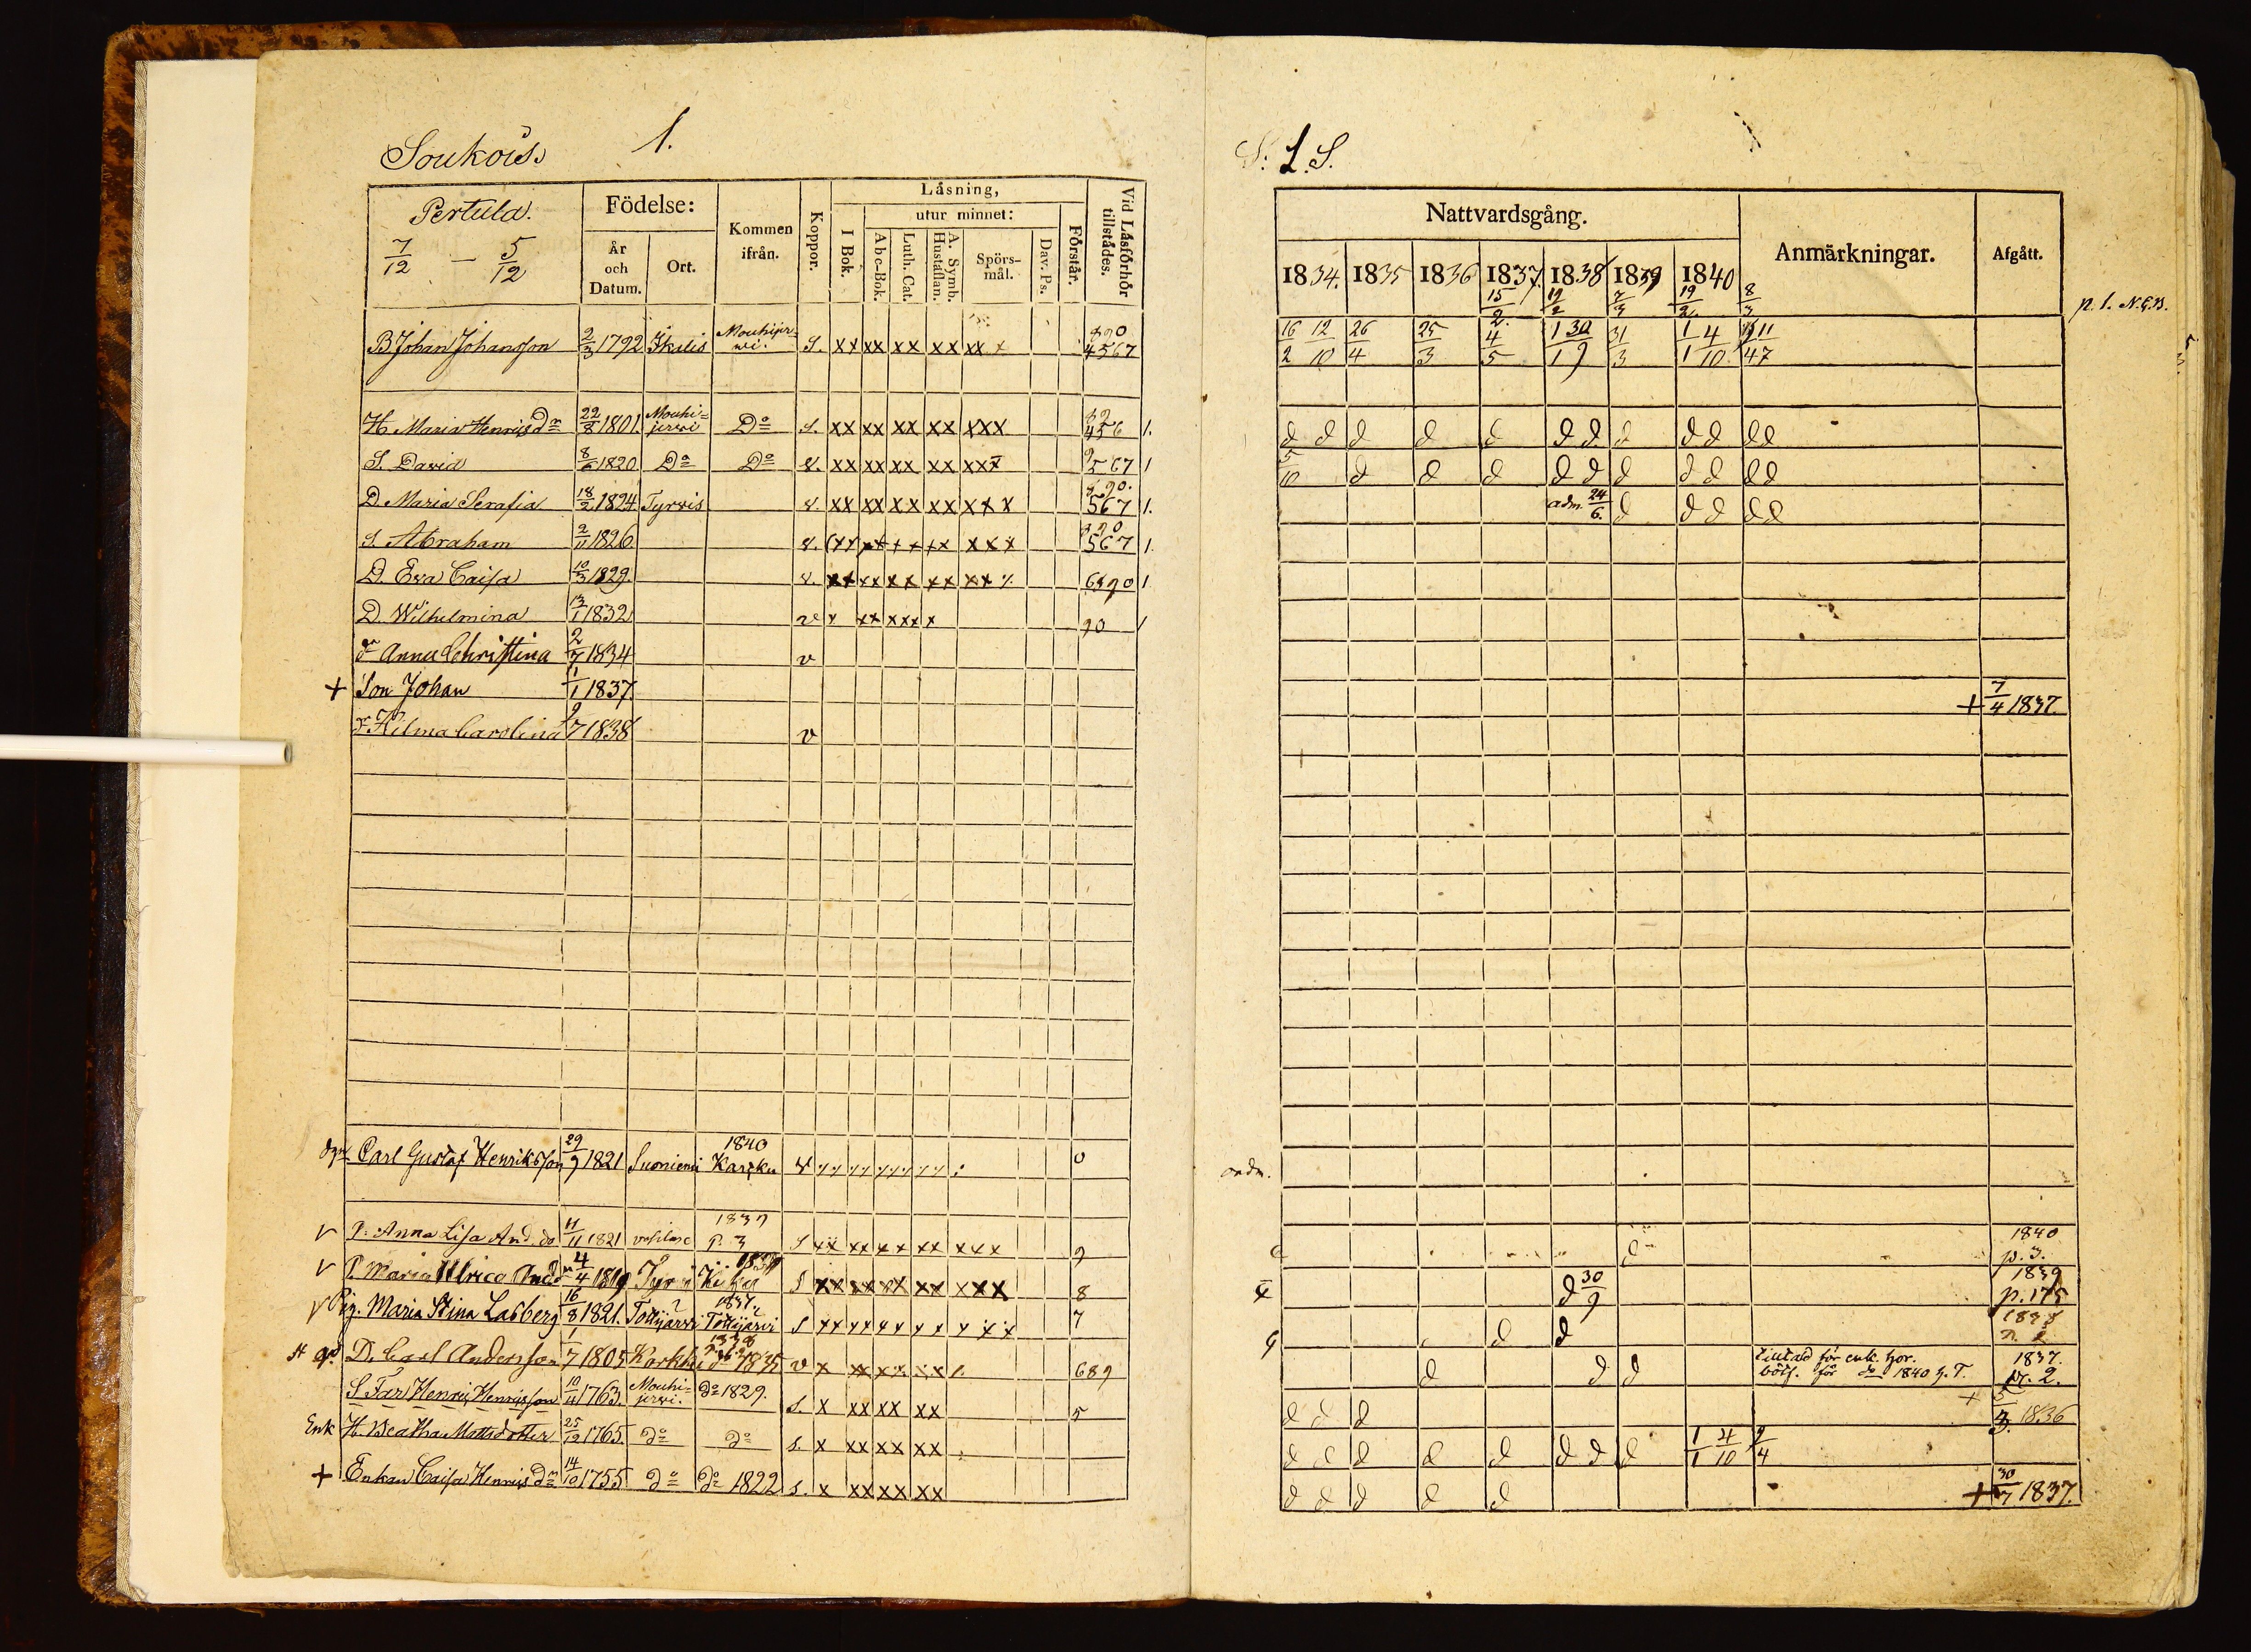 Soukois 1.
Pertula.
7/12 — 5/12
Födelse:
År och Datum.
Ort.
Kommen ifrån.
Koppor.
Läsning,
I Bok.
utur minnet:
Abc-Bok.
Luth. Cat.
A. Symb. Hustaflan.
Spörs-mål.
Dav. Ps.
Förstår.
Vid Läsförhör tillstädes.
B Johan Johansson 2/3 1792 Ikalis Mouhijerwi. S. xx xx xx xx xx x 4567
H. Maria Henricsdr 22/8 1801. Mouhi=jerwi Do S. xx xx xx xx xxx 456 1.
S. David 8/6 1820 Do Do v. xx xx xx xx xxx 567 1
D. Maria Serafia 18/2 1824 Tyrvis v. xx xx xx xx xxx 567 1.
S. Abraham 2/11 1826 v. xx xx xx xx xxx 567 1
D. Eva Caisa 10/3 1829. v. xx xx xx xx xx 6890 1
D. Wilhelmina 13/1 1832 v x xx xxx x 90 1
dr Anna Christina 2/7 1834 v
+ Son Johan 1/1 1837.
dr Hilma Carolina 9/7 1838 v
Carl Gustaf Henriksson 29/9 1821 Suoniemi 1840 Karkku v 0
v P: Anna Lisa And. do 11/11 1821 1839 p. 3 S xx xx xx xx xxx 9
v P. Maria Ulrica And 4/4 1819 S xx xx xx xx xxx 8
v Pig. Maria Stina Lasberg 16/8 1821. Tottijärvi 1837 Tottijärvi S xx xx xx xx xxx 7
D. Carl Andersson 1/7 1805 Karkku do 1835 v x xx xx xx 689
S Far Henric Henricsson 10/11 1763. Mouhi=jerwi. do 1829. S. x xx xx xx 5
Enk H. Beatha Mattsdotter 25/12 1765. do do S. x xx xx xx
+ Enkan Caisa Henricsdr 14/10 1755 do do 1822 S. x xx xx xx
S: 1. S.
Nattvardsgång.
Anmärkningar.
Afgått.
1834. 1835 1836 1837. 1838 1839 1840
15/2. 19/2 19/2 8/3
p. 1. N.G.B.
16/2 12/10 26/4 25/3 4/5 1/1 30/9 31/3 1/1 4/10 11
d d d d d d d d d d d d
5/10 d d d d d d d d d d
adm. 24/6. d d d d d
+ 7/4 1837.
d 1840 p. 3.
d 30/9 1839 p. 175
d d 1838
d d d för enk. hor. för do 1840 h. T. 1837. p. 2.
d d d + 3. 1836
d d d d d d d d 1/1 4/10
d d d d d + 30/7 1837.